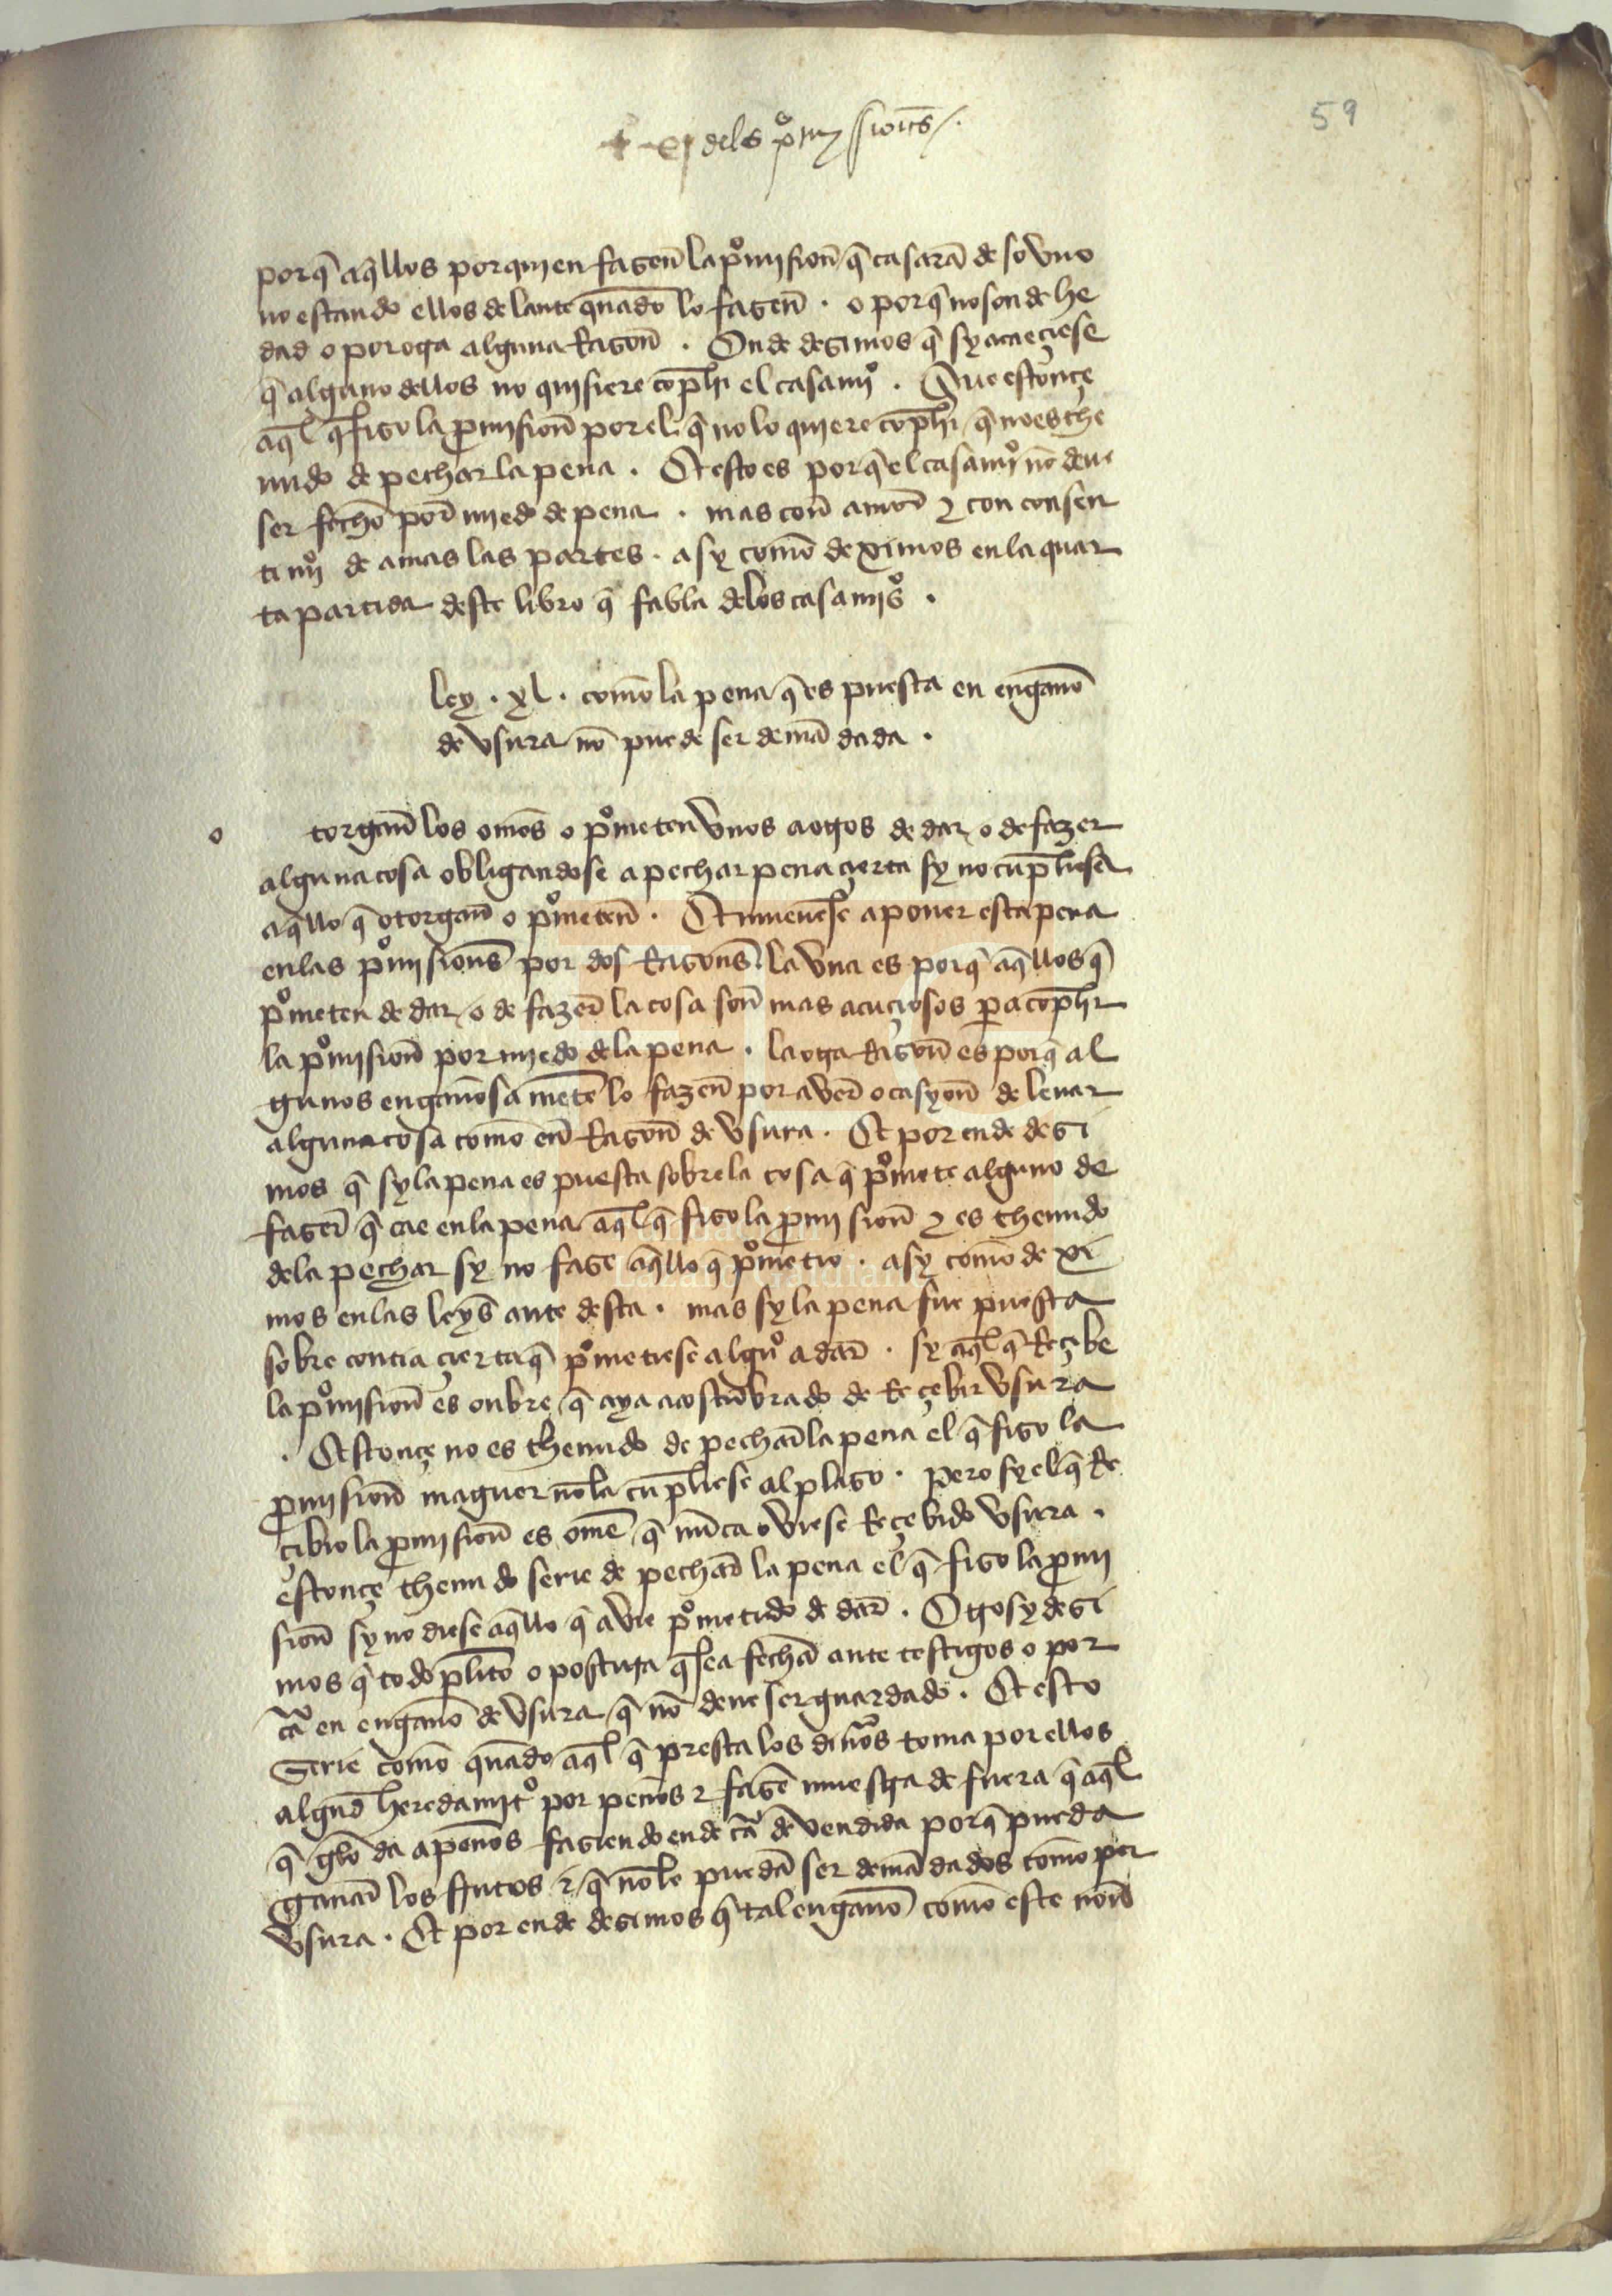 59
t xj dels p̊missiones
porq̄ aq̄llos por quien fazen̄ la p̊mision̄ q̄ casarā de so vno
no estando ellos delante quādo lo fazen̄ . o porq̄ no son de he
dad o por otra alguna Razon̄ . Onde dezimos q̄ sy acaeçiese
q̄ alguno dellos no quisiere cōplir el casamiº . Que estonçe
aq̄l q̄ fizo la p̄mision̄ por el q̄ no lo quiere cōplir q̄ no es the
nudo de pechar la pena . Et esto es porq̄ el casamiº nō deue
ser fecho por miedo de pena . mas con̄ amor ⁊ con consen
timiº de amas las partes . asy como deximos en la quar
ta partida deste libro q̄ fabla delos casamiºs .
ley . xl . como la pena q̄ es puesta en engano
de vsura nō puede ser demādada .
o torgan̄ los omes o p̊meten vnos a otros de dar o de fazer
alguna cosa obligandose a pechar pena çierta sy no cūpliesen
aq̄llo q̄ otorgan̄ o p̊meten̄ . Et mueuense a poner esta pena
en las p̊misiones por dos Razones la vna es porq̄ aq̄llos q̄
p̊meten de dar o de fazer la cosa son̄ mas acuçiosos pa cōplir
la p̊mision̄ por miedo dela pena . la otra Razon̄ es porq̄ al
gunos enganosamēte lo fazen̄ por aver ocasyon̄ de leuar
alguna cosa como en̄ Razon̄ de vsura . Et por ende dezi
mos q̄ sy la pena es puesta sobre la cosa q̄ p̊mete alguno de
fazer q̄ cae en la pena aq̄l q̄ fizo la p̄mision̄ ⁊ es thenudo
dela pechar sy no faze aq̄llo q̄ p̊metio . asy como dexi
mos en las leyes ante desta . mas sy la pena fue puesta
sobre contia çierta q̄ p̊metiese algūº a dar . sy aq̄l q̄ Reçibe
la p̊mision̄ es onbre q̄ aya acostūbrado de Reçebir vsura
. Estonçe no es thenudo de pechar la pena el q̄ fizo la
p̄mision̄ maguer nō la cūpliese al plazo . Pero sy el q̄ Re
çibio la p̄mision̄ es ome q̄ nūca oviese Reçebido vsura .
estonçe thenudo serie de pechar la pena el q̄ fizo la p̄mi
sion̄ sy no diese aq̄llo q̄ avie p̊metido de dar . Otrosy dezi
mos q̄ todo plito o postura q̄ sea fecha ante testigos o por
cā en engano de vsura q̄ nō deue ser guardado . Et esto
Serie como quādo aq̄l q̄ presta los dinos toma por ellos
algun̄ heredamitº por penos ⁊ faze muestra de fuera q̄ aq̄l
q̄ gelo da apenos faziendo ende cā de vendida porq̄ pueda
ganar los frutos ⁊ q̄ nō le puedā ser demādados como por
vsura . Et por ende dezimos q̄ tal engano como este non̄